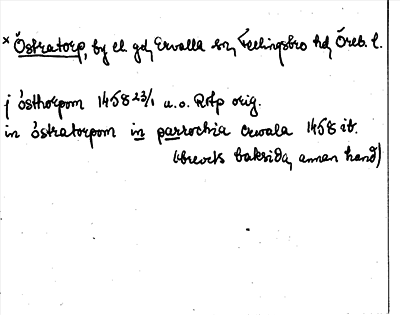 × Östratorp, by el. gd, Ervalla sn, Fellingsbro hd, Öreb. l.
j østhorpom 1458 23/1 u.o. RAp orig.
in östratorpom in parrochia ervala 1458 ib.
(brevets baksida, annan hand)